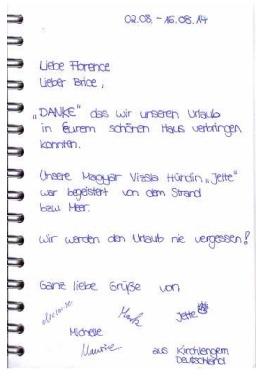 02.08. - 16.08.14
Liebe Florence
Lieber Brice,
"DANKE" das wir unseren Urlaub
in Eurem schönen Haus verbringen
konnten.
Unsere Magyar Vizsla Hündin "Jette"
war begeistert von dem Strand
bzw Meer.
Wir werden den Urlaub nie vergessen!
Ganz liebe Grüße von
Mark Jette
Michelle
Maurice aus Kirchlengern
Deutschland